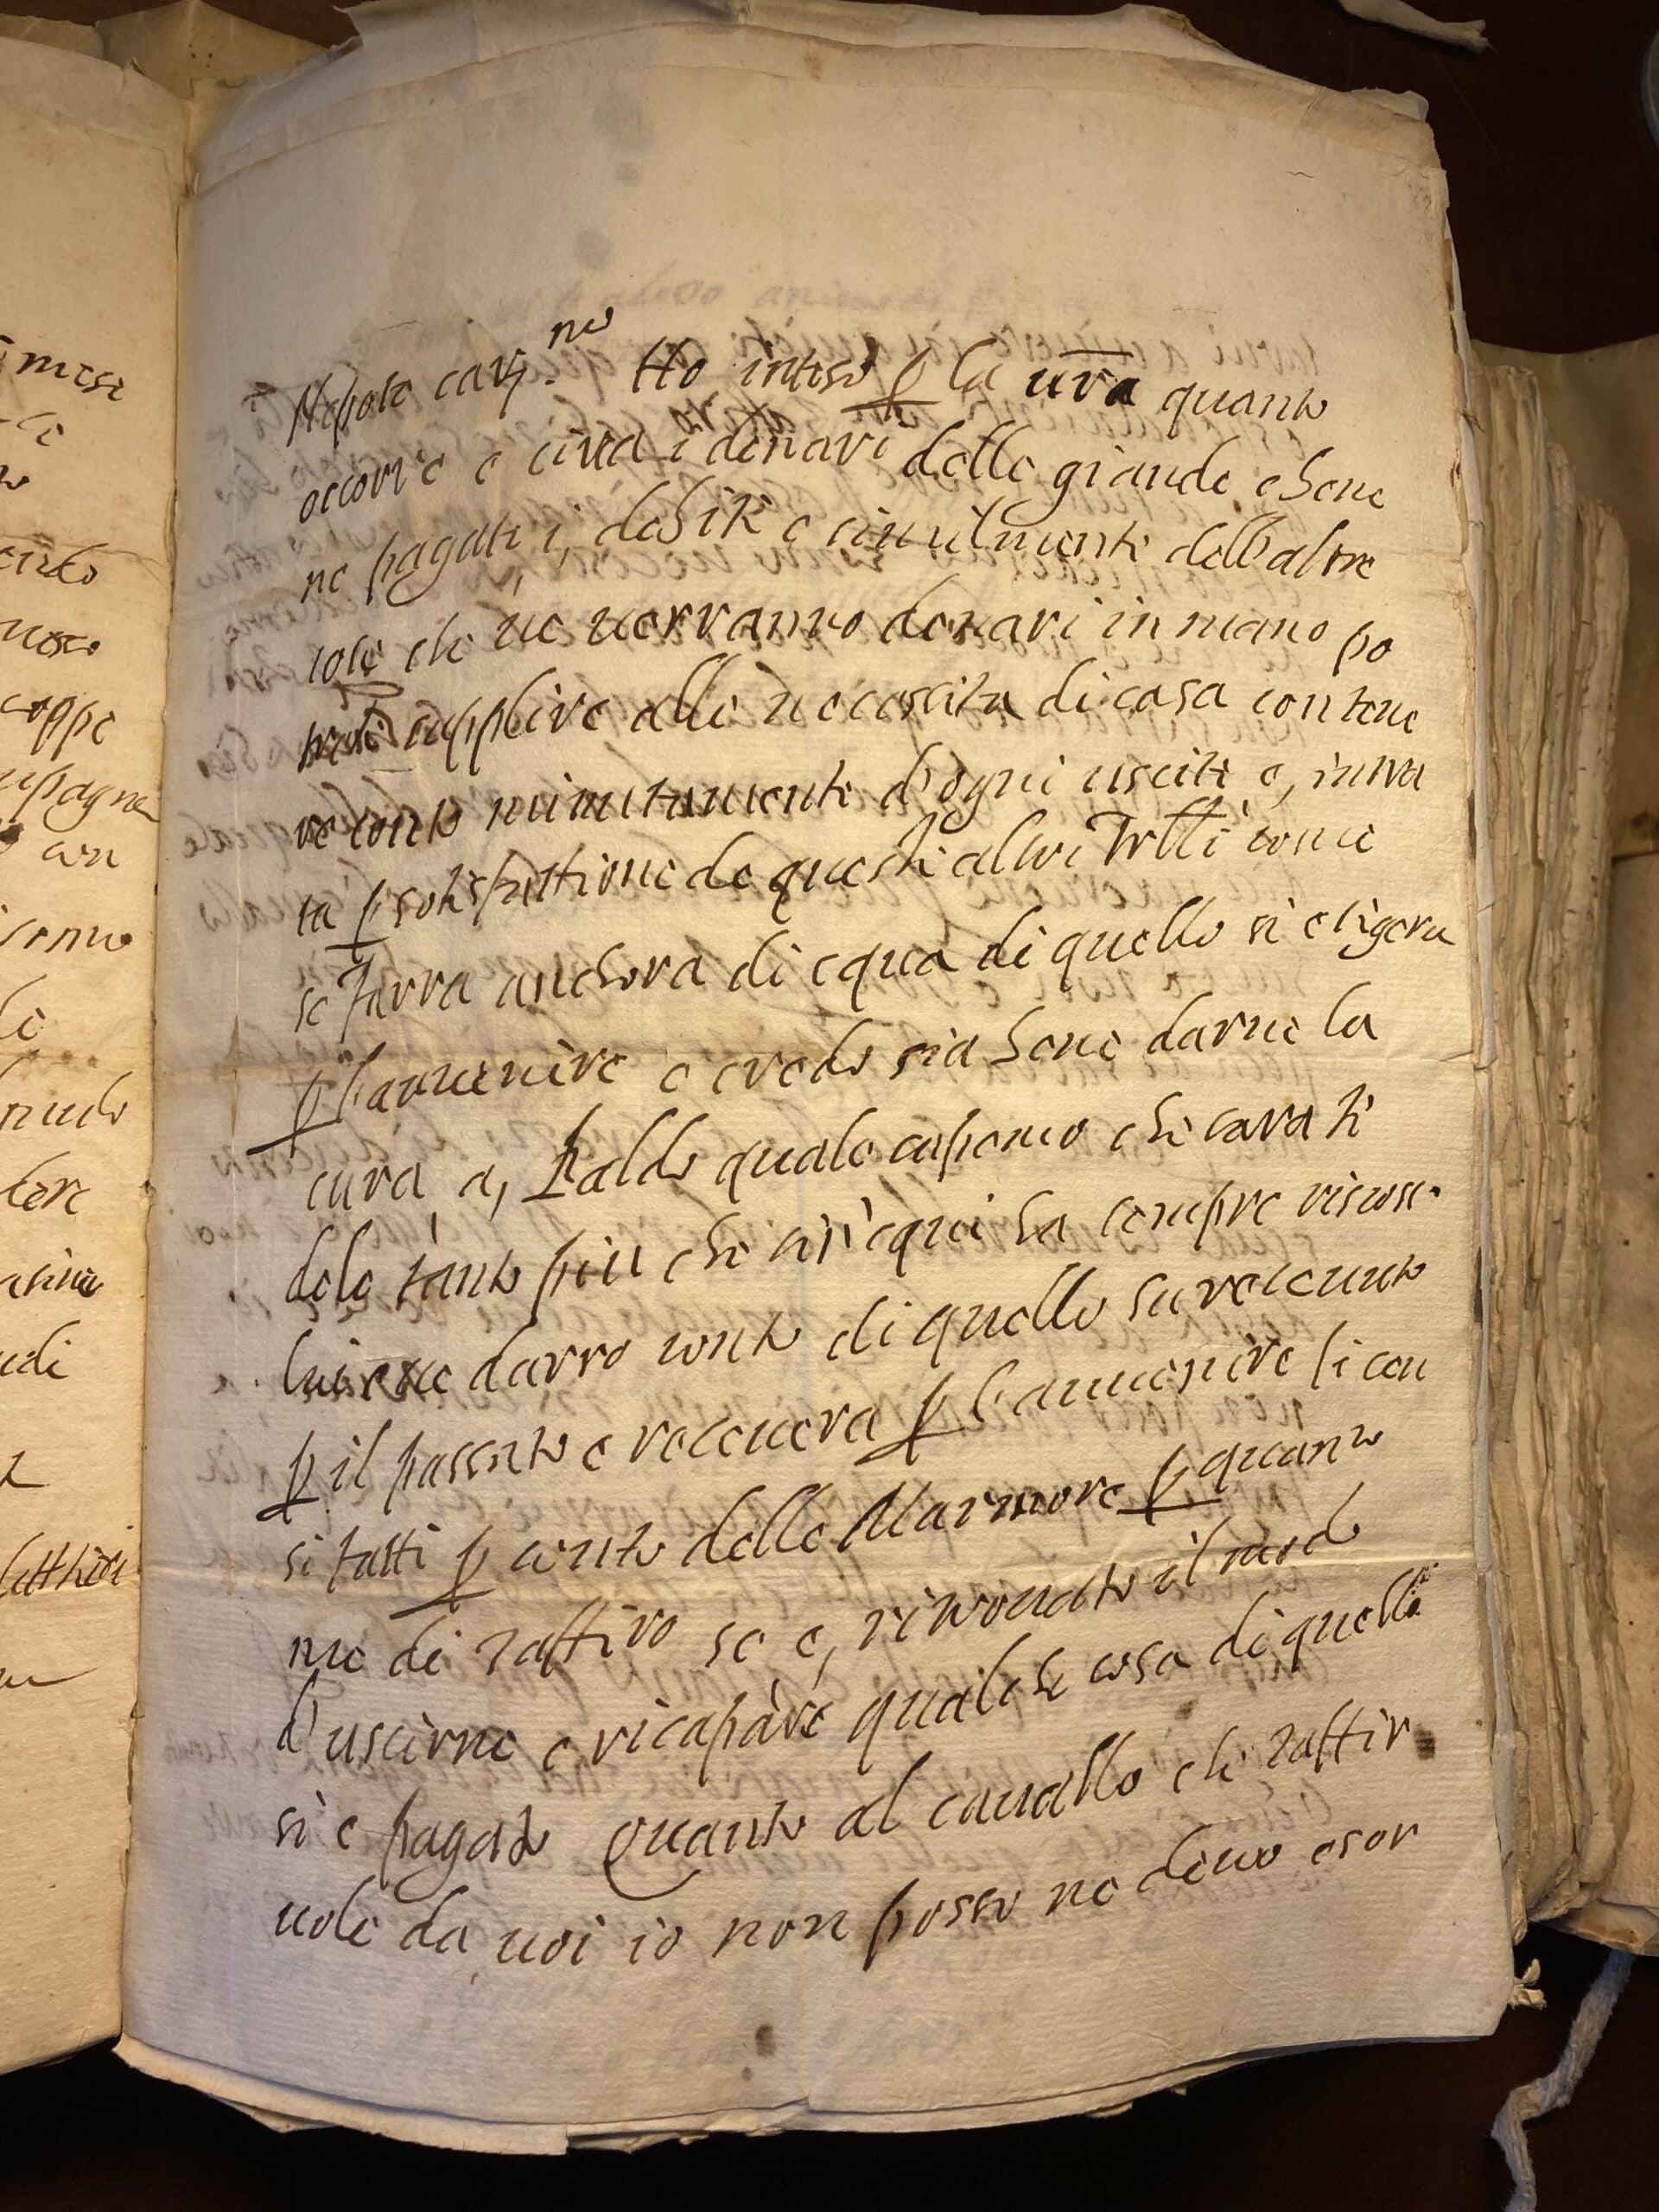 Nepote cariss.mo Ho inteso p la vra quanto
occorre e circa i denari delle giande e bene
ne pagati i, debiti e cimilmente dell'altre
cose che ne verranno denari in mano po
trete cupplire alle necessita di casa con tene
re conto minutamente d'ogni uscite e, intra
ta p sotisfattione de questi altri Tutti come
se farra anchora di equa di quello si eligera
p l'avvenire e credo sia bene darne la
cura a, Baldo quale capemo che cara ti
dele tanto piu che cin'equi ha cempre riscosso
lui ene darro conto di quello ha receuuto
p il passato e receuera p l'auuenire li con
si fatti p conto delle Marmore p quanto
me di Zaffiro se e, ritrouato il modo
d'uscirne e ricapare qualche cosa di quello
si e pagato Quanto al cauallo che Zaffiro
uole da uoi io non posso ne deuo esor